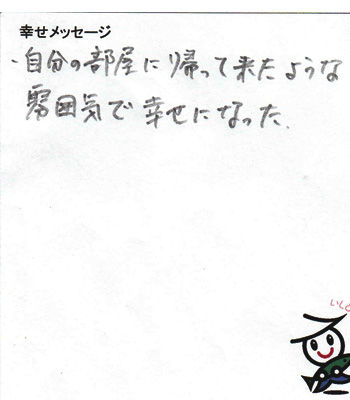 幸せメッセージ
・自分の部屋に帰って来たような
雰囲気で幸せになった.